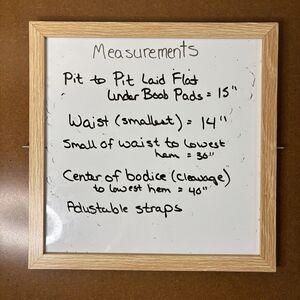 Measurements
Pit to Pit Laid Flat
under Boob Pads = 15"
Waist (smallest) = 14"
Small of waist to lowest
hem = 30"
Center of bodice (cleavage)
to lowest hem = 40"
Adustable straps